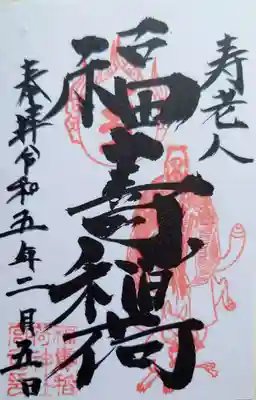 寿老人
福寿稲荷
奉拝令和五年二月五日